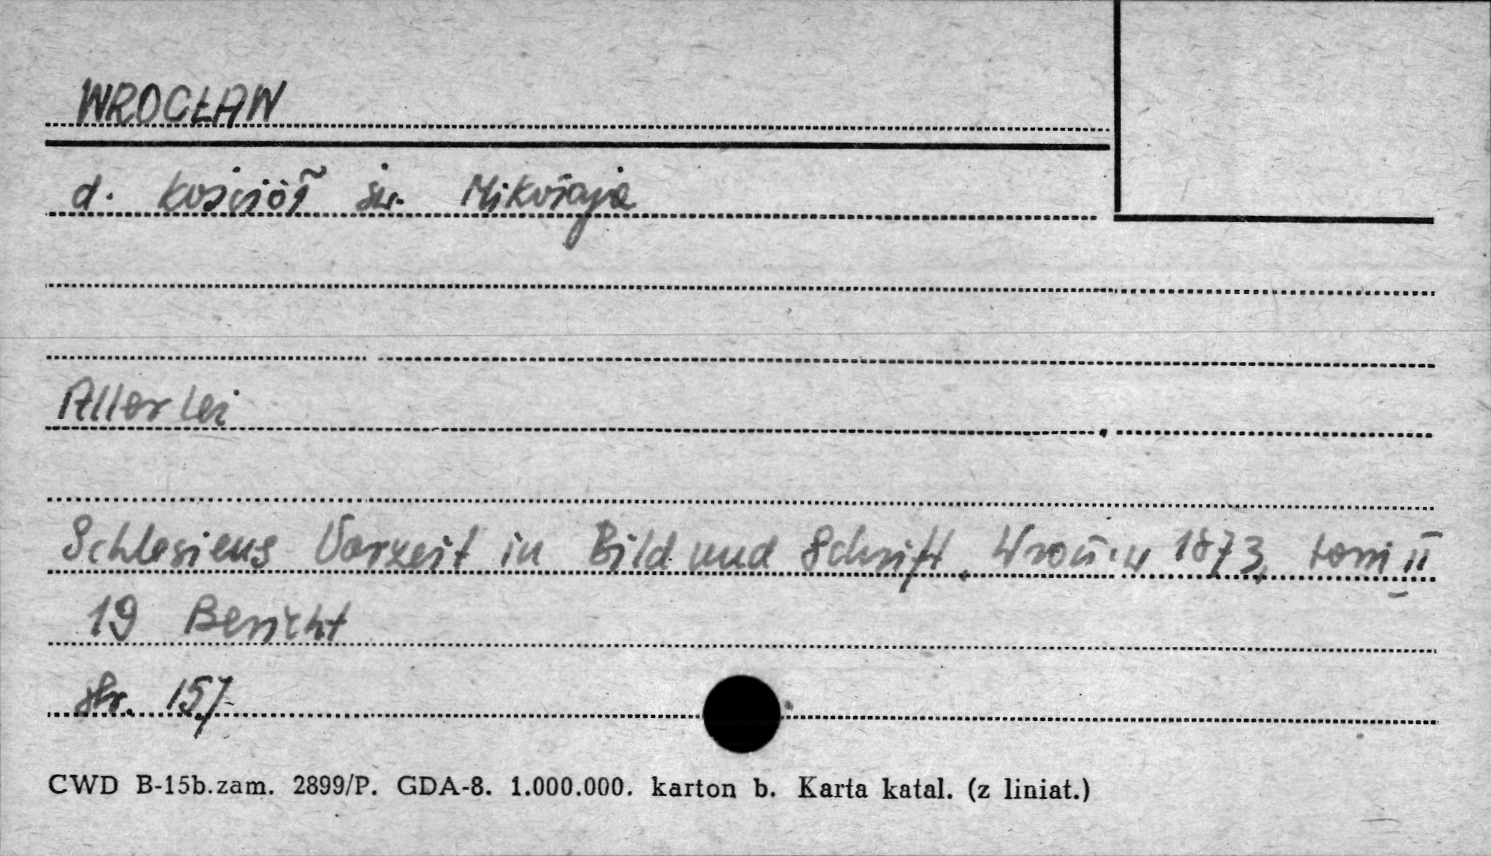 WROCŁAW
d. kościół św. Mikołaja
Allerlei
Schlesiens Vorzeit in Bild und Schrift. Wrocław 1873, tom II
19 Bericht
str. 157
CWD B-15b.zam. 2899/P. GDA-8. 1.000.000. karton b. Karta katal. (z liniat.)